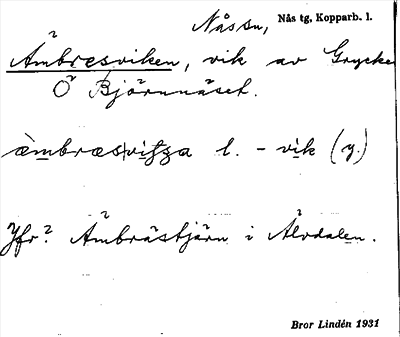 Nåssn, Nås tg, Kopparb. l.
Ämbresviken, vik av Grycken
Ö Björnnäset.
æmbræsvit̄ʒa l. - vik (y.)
Jfr? Ämbrästjärn i Älvdalen.
Bror Lindén 1931